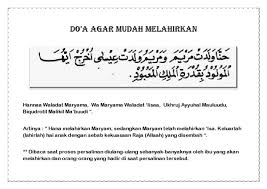 DO'A AGAR MUDAH MELAHIRKAN
حَنَّا وَلَدَتْ مَرْيَمَ وَمَرْيَمُ وَلَدَتْ عِيْسَى أُخْرُجْ أَيُّهَا
الْمَوْلُوْدُ بِقُدْرَةِ الْمَلِكِ الْمَعْبُوْدِ.
Hannaa Waladat Maryama, Wa Maryama Waladat 'Iisaa, Ukhruj Ayyuhal Mauluudu,
Biqudrotil Malikil Ma'buudi ".
Artinya : " Hana melahirkan Maryam, sedangkan Maryam telah melahirkan 'Isa. Keluarlah
(lahirlah) hai anak dengan sebab kekuasaan Raja (Allaah) yang disembah ".
** Dibaca saat proses persalinan diulang-ulang sebanyak-banyaknya oleh ibu yang akan
melahirkan dan orang-orang yang hadir di saat persalinan tersebut.